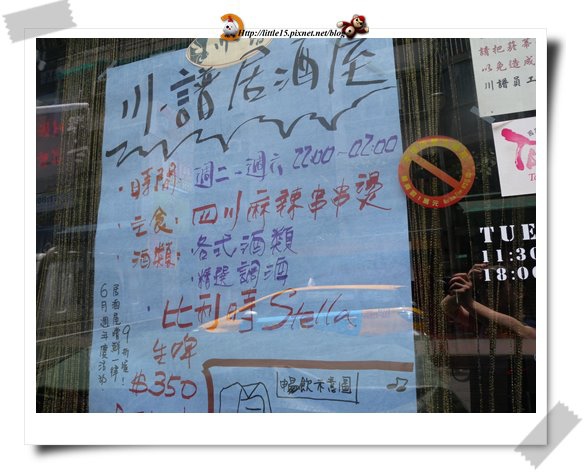 Http://little15.pixnet.net/blog
川譜居酒屋
請把菸蒂
以免造成
川譜員工
•時間：週二~週六 22:00~02:00
•主食：四川麻辣串串燙
•酒類：各式酒類
•精選調酒
•比利時Stella
生啤
$350
6月週年慶活動
居酒屋嚐到一律9折喔！
暢飲示意圖
TUE
11:30
18:00